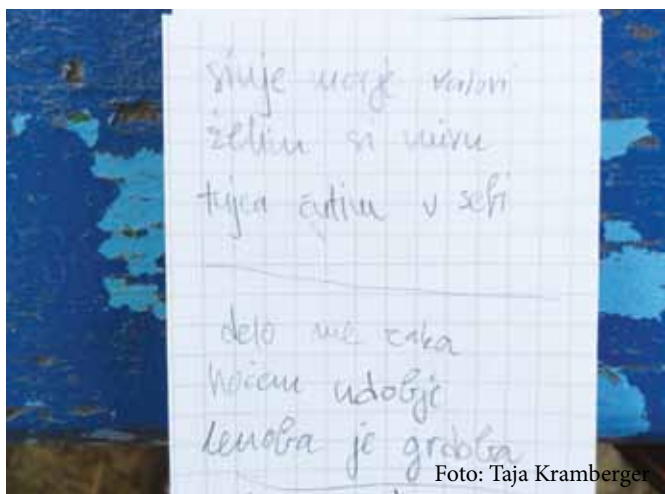 sinje morje valovi
želim si miru
tujca čutim v sebi
delo me čaka
hočem udobje
lenoba je grdoba
Foto: Taja Kramberger